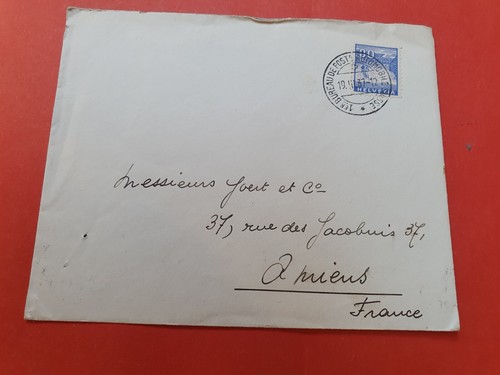 30
HELVETIA
1ER BUREAU DE POSTE AUTOMOBILE SUISSE
Messieurs Yvert et Co
37, rue des Jacobins 37,
Amiens
France